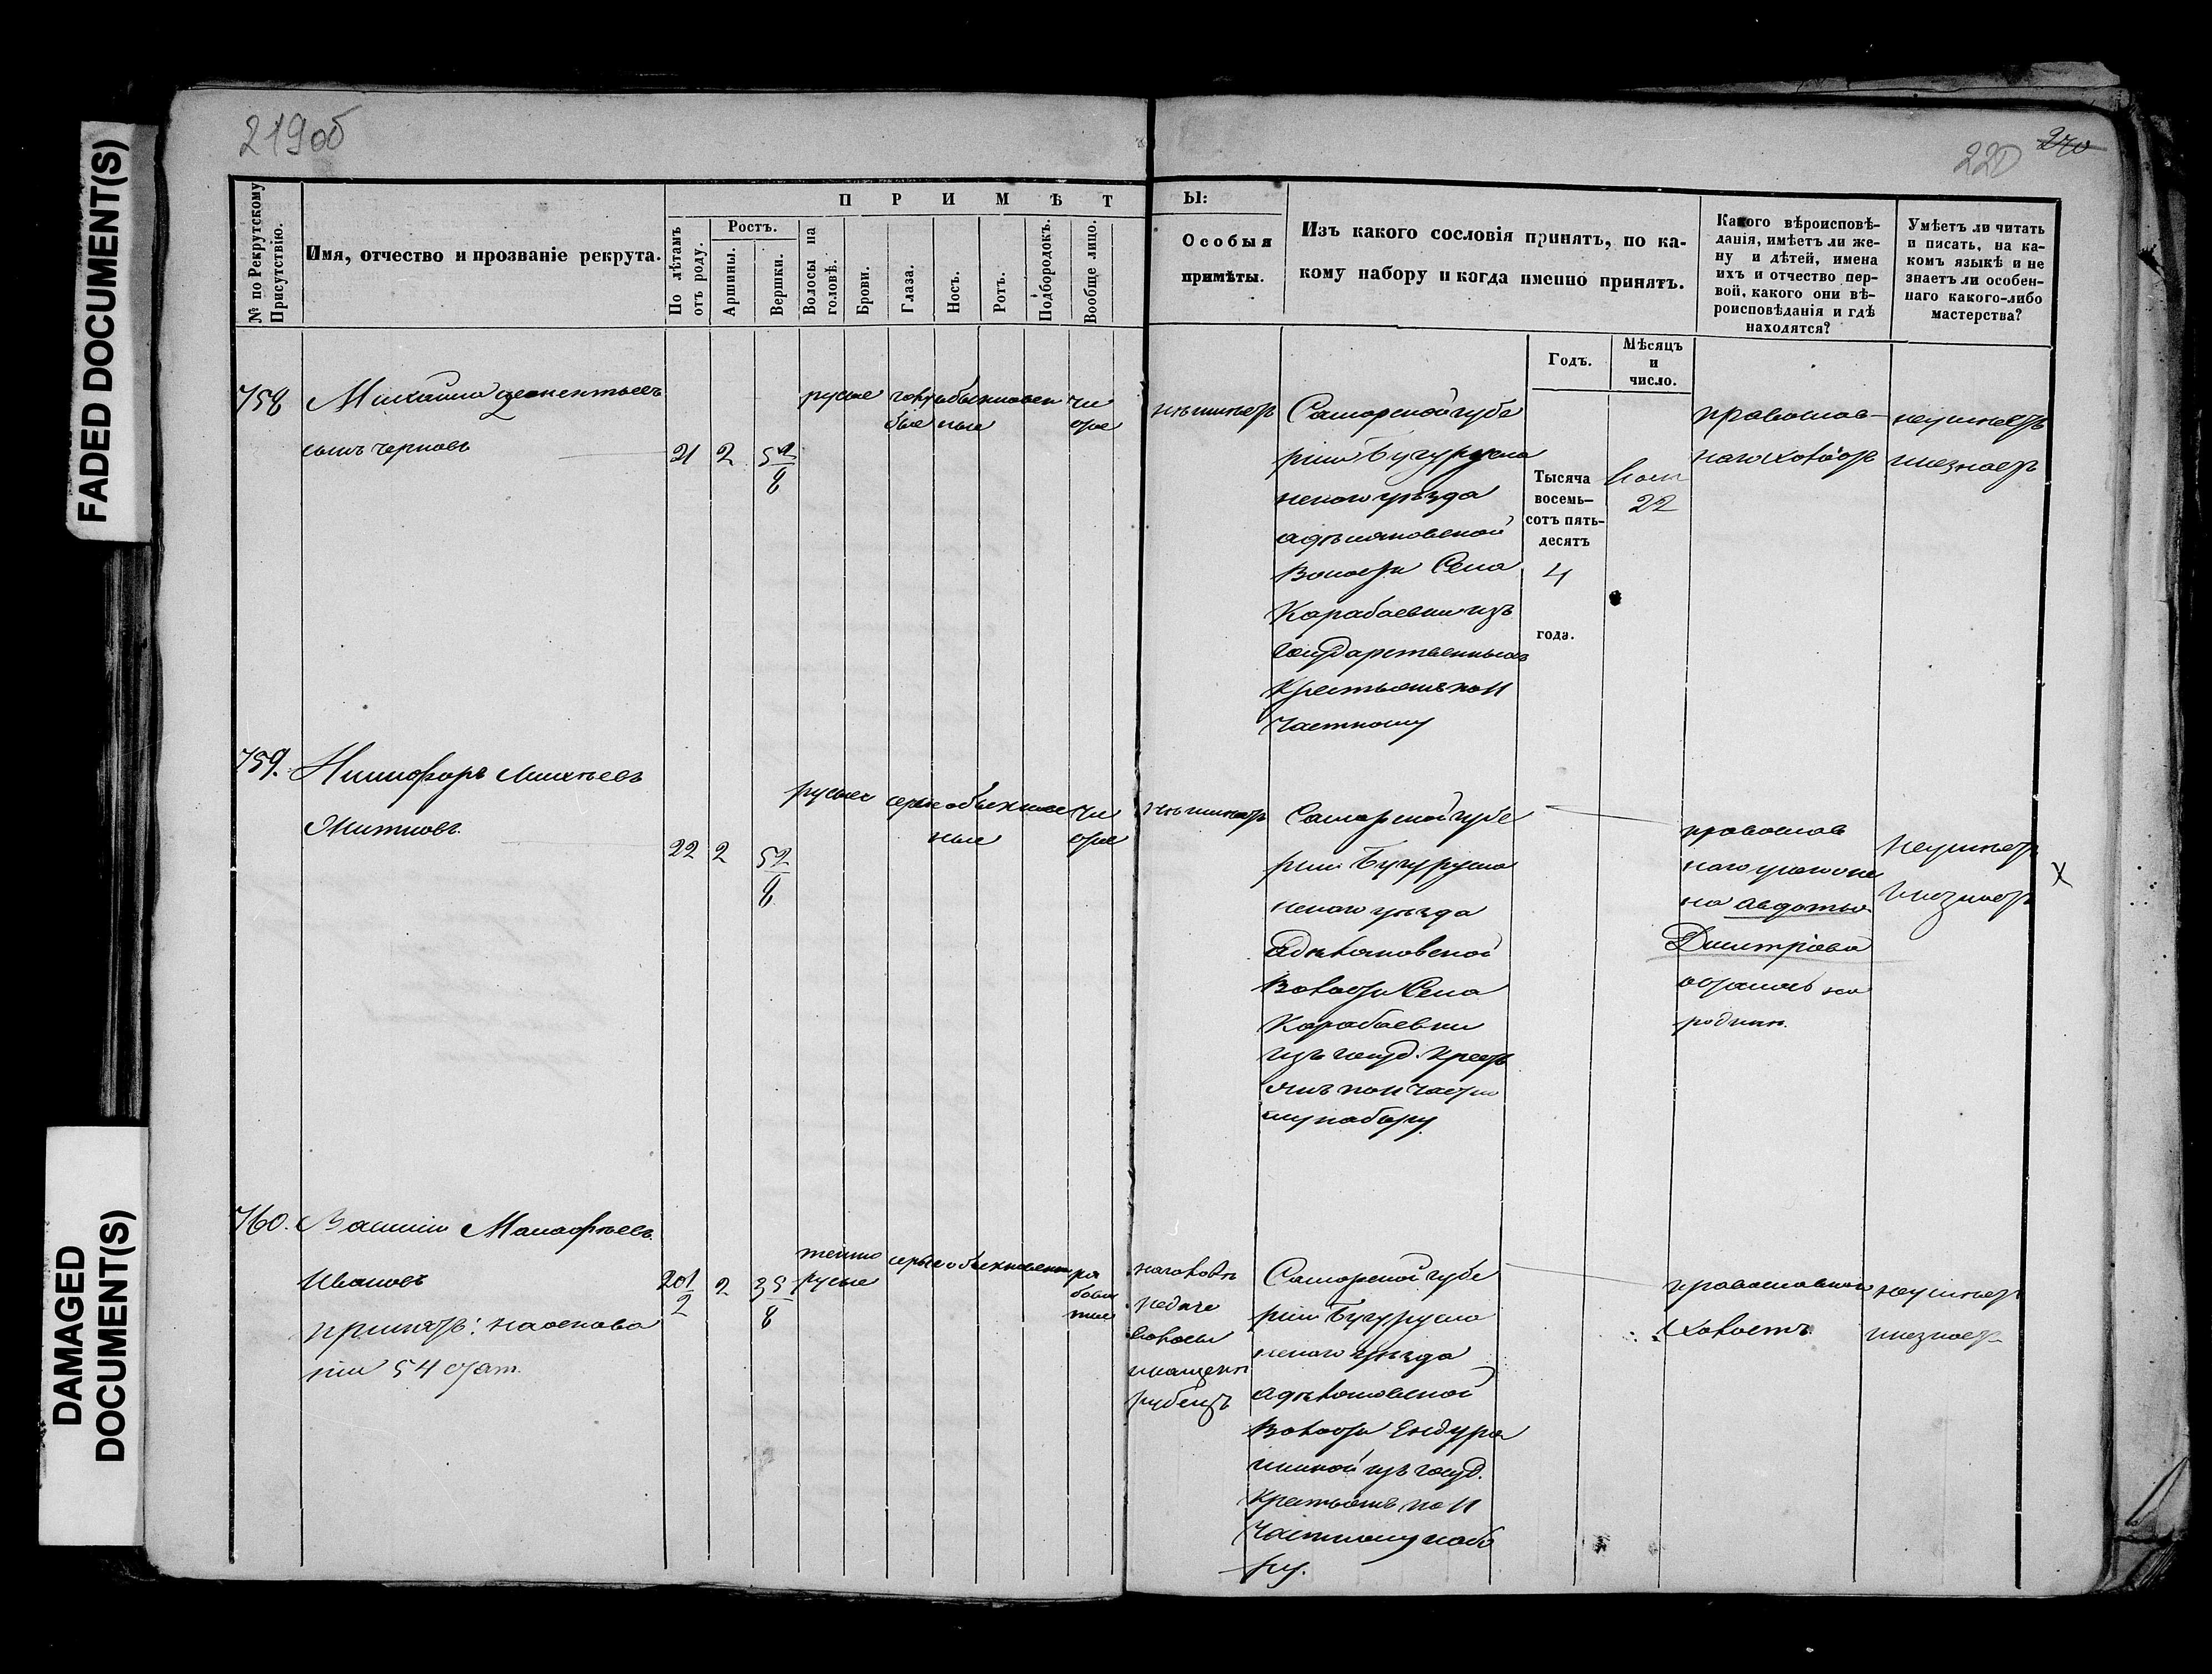 FADED DOCUMENT(S)
DAMAGED
DOCUMENT(S)
219об
220
270
№ по Рекрутскому
Присутствію.
Имя, отчество и прозваніе рекрута.
П Р И М Ѣ Т
По лѣтамъ
отъ роду.
Ростъ.
Аршины.
Вершки.
Волосы на
головѣ.
Брови.
Глаза.
Носъ.
Ротъ.
Подбородокъ.
Вообще лицо.
Ы:
Особыя
примѣты.
Изъ какого сословія принятъ, по ка-
кому набору и когда именно принятъ.
Годъ.
Мѣсяцъ
и
число.
Какого вѣроисповѣ-
данія, имѣетъ ли же-
ну и дѣтей, имена
ихъ и отчество пер-
вой, какого они вѣ-
роисповѣданія и гдѣ
находятся?
Умѣетъ ли читать
и писать, на ка-
комъ языкѣ и не
знаетъ ли особен-
наго какого-либо
мастерства?
758
Михайло
сынъ Черновъ
21
2
русые
чи
стое
неимѣетъ
Самарской губе
рніи Бугурусла
нскаго уѣзда
Волости Села
Карабаевки изъ
Государственныхъ
Крестьянъ по 11
Частному
Тысяча
восемь-
сотъ пять-
десятъ
4
года.
22
православ-
наго холостъ
неумѣетъ
инезнаетъ
759.
Никифоръ
Житковъ.
22
2
5 2/8
русые
серые
обыкновен
ные
чи
стое
неимѣетъ
Самарской губе
рніи Бугурусла
нскаго уѣзда
Волости Села
Карабаевки
изъ госуд. Крест
янъ по 11 Частно
му набору
православ
наго у него же
на Авдотья
Дмитріева
осталась на
родинѣ.
неумѣетъ
инезнаетъ
X
760.
Василій
Ивановъ
принятъ: на основа
ніи 54 стат.
20 1/2
2
3 5/8
темно
русые
серые
обыкновенн
ря
бова
тое
на головѣ
рубецъ
Самарской губе
рніи Бугурусла
нскаго уѣзда
Волости
изъ госуд.
Крестьянъ по 11
Частному набо
ру.
православнаго
Холостъ.
неумѣетъ
инезнаетъ